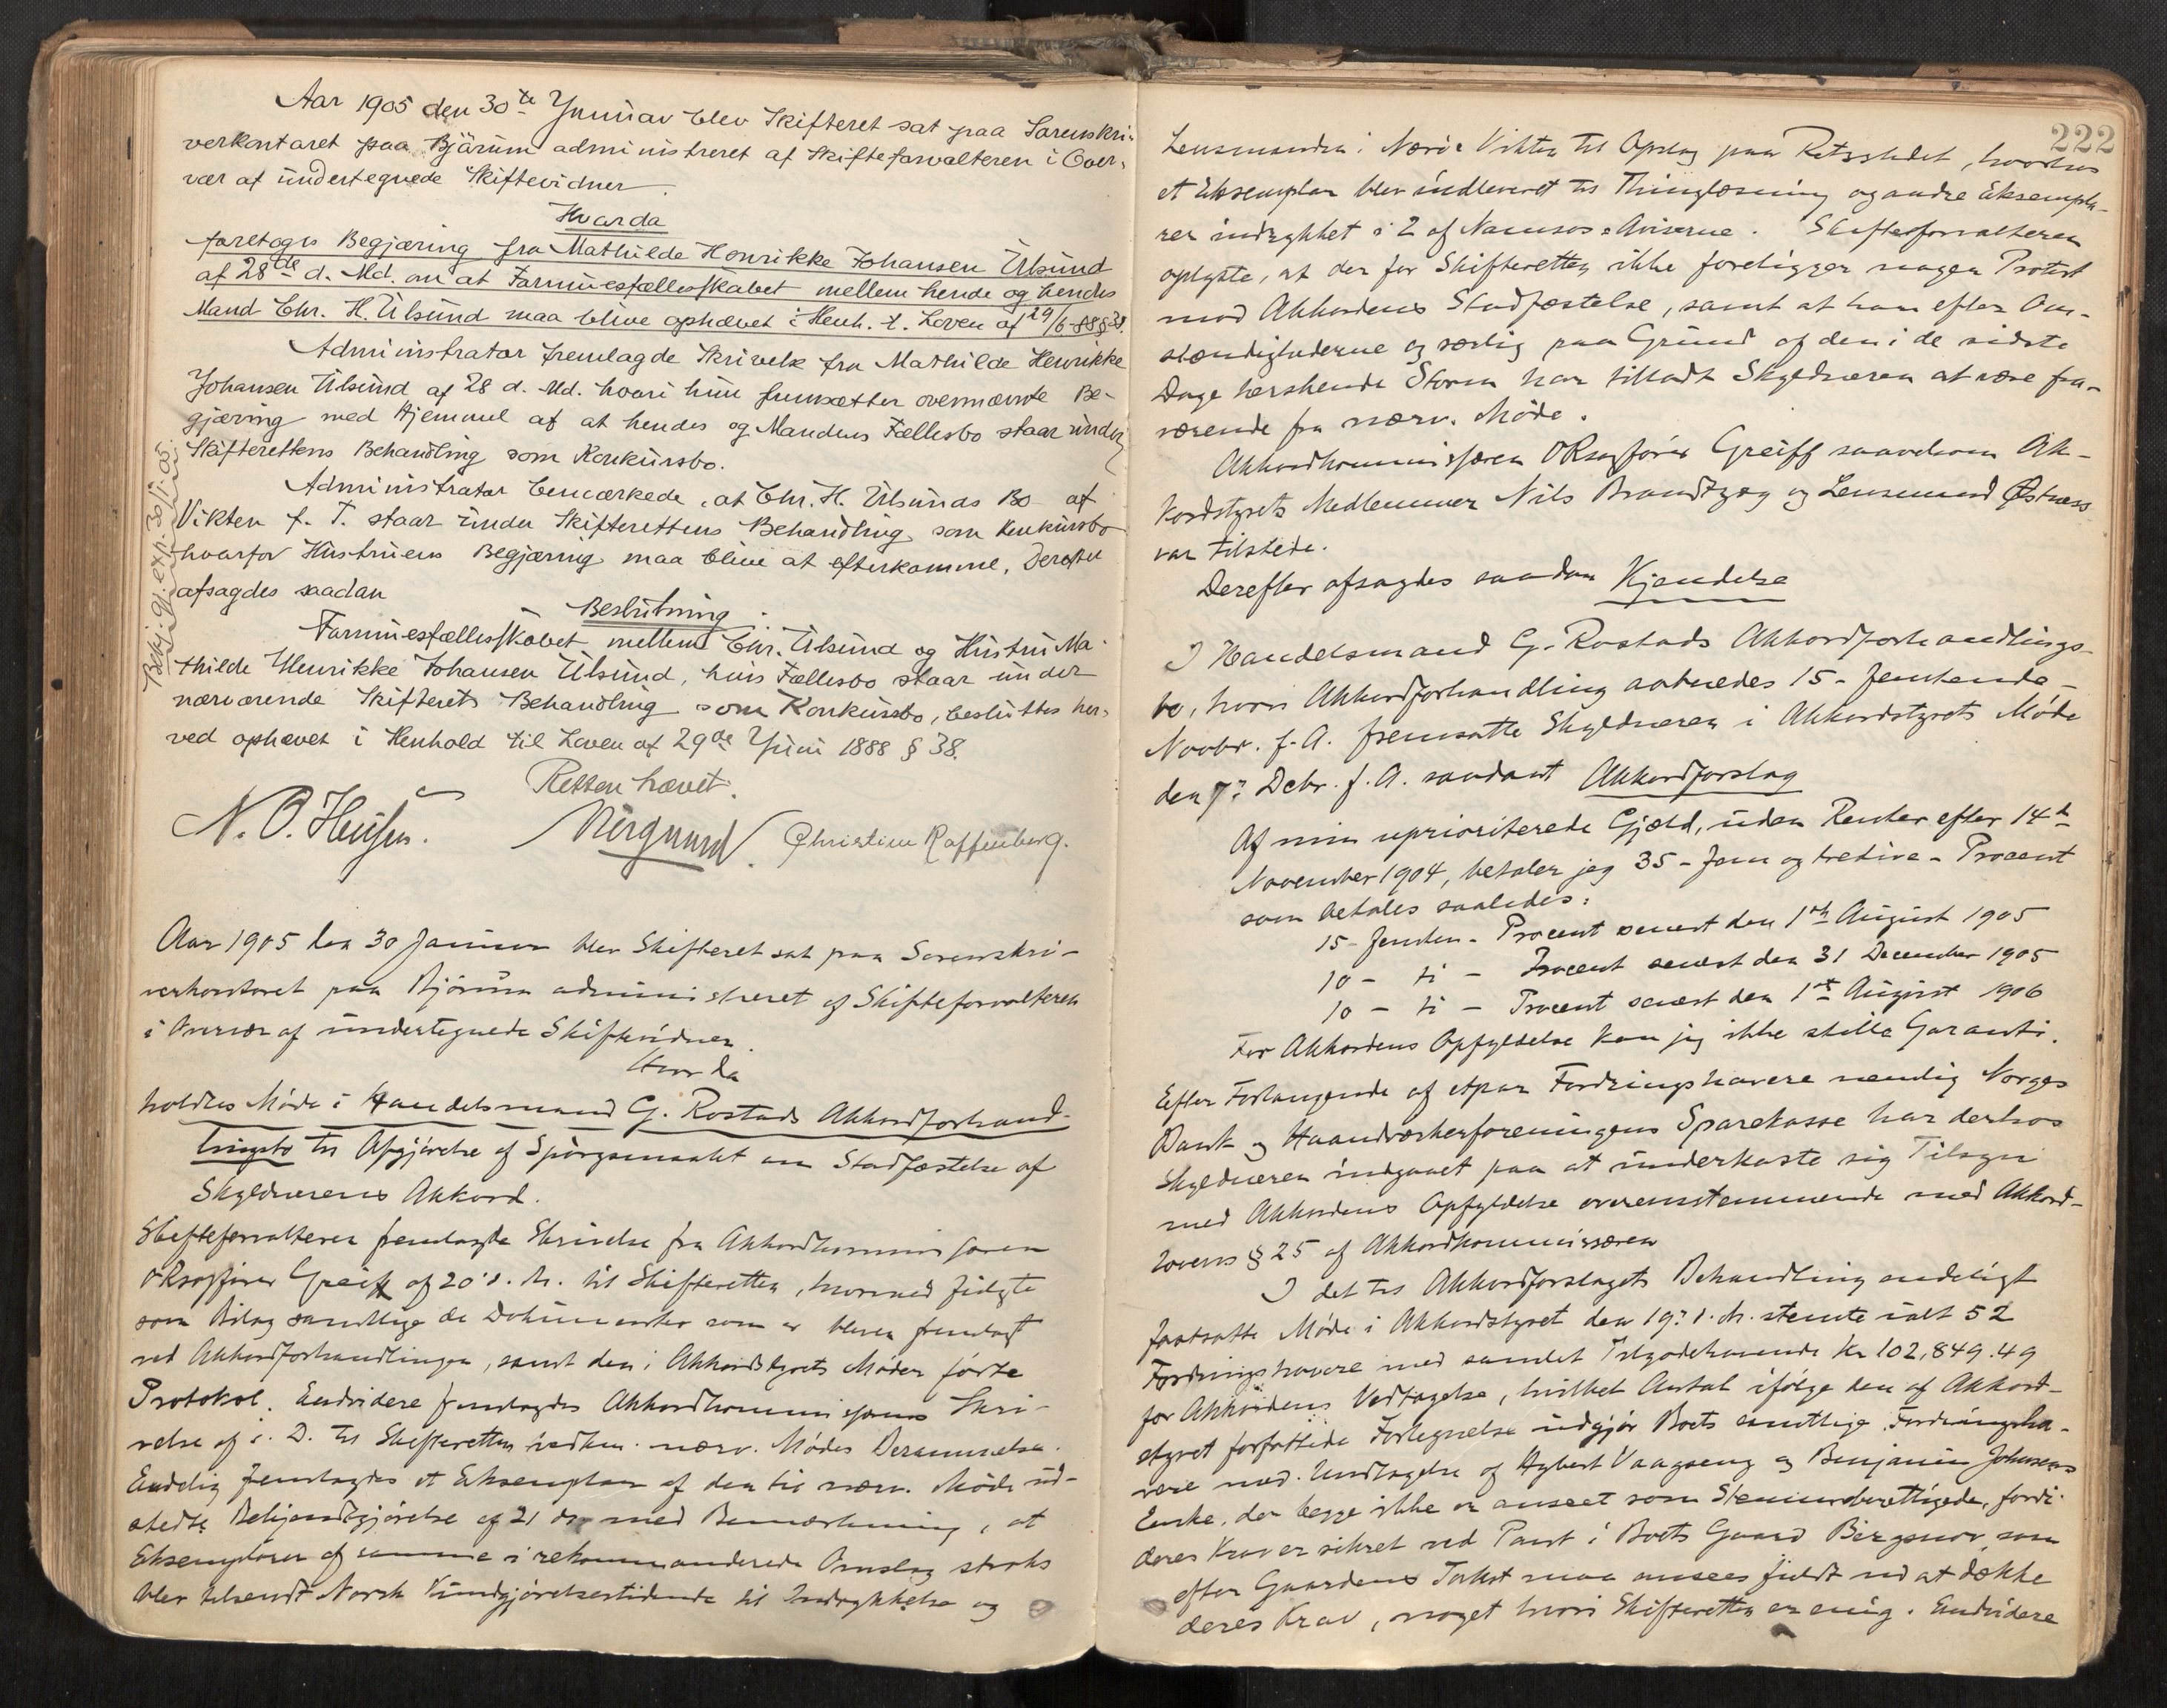 Aar 1905 den 30te Januar blev Skifteret sat paa Sorenskri-
verkontoret paa Bjørum administreret af Skifteforvalteren i Over-
vær af undertegnede Skiftevidner.
Hvorda
foretoges Begjæring fra Mathilde Henrikke Johansen Ulsund
af 28de d. Md. om at Formuesfællesskabet mellem hende og hendes
Mand Chr. H. Ulsund maa blive ophævet i Henh. t. Loven af 29/6-88 § 38.
Administrator fremlagde Skrivelse fra Mathilde Henrikke
Johansen Ulsund af 28 d. Md. hvori hun fremsætter ovennævnte Be-
gjæring med Hjemmel af at hendes og Mandens Fællesbo staar under
Skifterettens Behandling som Konkursbo.
Administrator bemærkede, at Chr. H. Ulsunds Bo af
Vikten f. T. staar under Skifterettens Behandling som Konkursbo
hvorfor Hustruens Begjæring maa blive at efterkomme. Derefter
afsagdes saadan
Beslutning:
Formuesfællesskabet mellem Chr. Ulsund og Hustru Ma-
thilde Henrikke Johansen Ulsund, hvis Fællesbo staar under
nærværende Skifterets Behandling som Konkursbo, besluttes her-
ved ophævet i Henhold til Loven af 29de Juni 1888 § 38.
Retten hævet.
N. O. Hensen. Nergaard. Christine Raffenberg.
Bekj. gj. exp. 30/1-05.
Aar 1905 den 30 Januar blev Skifteret sat paa Sorenskri-
verkontoret paa Bjørum administreret af Skifteforvalteren
i Overvær af undertegnede Skiftevidner.
Hvorda
holdtes Møde i Handelsmand G. Rostads Akkordforhand-
lingsbo til Afgjørelse af Spørgsmaalet om Stadfæstelse af
Skyldnerens Akkord.
Skifteforvalteren fremlagde Skrivelse fra Akkordkommissæren
ORsagfører Greiff af 20' d. M. til Skifteretten, hvormed fulgte
som Bilag samtlige de Dokumenter som er bleven fremlagt
ved Akkordforhandlingen, samt den i Akkordstyrets Møder førte
Protokol. Endvidere fremlagdes Akkordkommissærens Skri-
velse af s. D. til Skifteretten vedkom. nærv. Mødes Berammelse.
Endelig fremlagdes et Eksemplar af den til nærv. Møde ud-
stedte Bekjendtgjørelse af 21 ds med Bemærkning, at
Eksemplarer af samme i rekommanderede Omslag straks
blev tilsendt Norsk Kundgjørelsestidende til Indrykkelse og
222
Lensmanden i Nærø Vikten til Opslag paa Retsstedet, hvorhos
et Eksemplar blev indleveret til Thinglæsning og andre Eksempla-
rer indrykket i 2 af Namsos-Aviserne. Skifteforvalteren
oplyste, at der for Skifteretten ikke foreligger nogen Protest
mod Akkordens Stadfæstelse, samt at han efter Om-
stændighederne og særlig paa Grund af den i de sidste
Dage herskende Storm har tilladt Skyldneren at være fra-
værende fra nærv. Møde.
Akkordkommissæren ORsagfører Greiff saavelsom Ak-
kordstyrets Medlemmer Nils Brandtzæg og Lensmand Østness
var tilstede.
Derefter afsagdes saadan Kjendelse
I Handelsmand G. Rostads Akkordforhandlings-
bo, hvori Akkordforhandling aabnedes 15 - femtende -
Novbr. f. A. fremsatte Skyldneren i Akkordstyrets Møde
den 7: Debr. f. A. saadant Akkordforslag
Af min uprioriterede Gjæld, uden Renter efter 14de
November 1904, betaler jeg 35 - fem og tredive - Procent
som betales saaledes:
15 - femten - Procent senest den 1ste August 1905
10 - ti - Procent senest den 31 December 1905
10 - ti - Procent senest den 1ste August 1906
For Akkordens Opfyldelse kan jeg ikke stille Garanti.
Efter Forlangende af etpar Fordringshavere nemlig Norges
Bank og Haandverkerforeningens Sparekasse har derhos
Skyldneren indgaaet paa at underkaste sig Tilsyn
med Akkordens Opfyldelse overensstemmende med Akkord-
lovens § 25 af Akkordkommissæren
I det til Akkordforslagets Behandling endeligt
fastsatte Møde i Akkordstyret den 19: d. M. stemte ialt 52
Fordringshavere med samlet Tilgodehavende Kr 102,849.49
for Akkordens Vedtagelse, hvilket Antal ifølge den af Akkord-
styret forfattede Fortegnelse udgjør Boets samtlige Fordringsha-
vere med Undtagelse af Vaagseng og Benjamin Johnsens
Enke, der begge ikke er anseet som Stemmeberettigede, fordi
deres Krav er sikret ved Pant i Boets Gaard Bergsnov, som
efter Gaardens Takst maa ansees fuldt ud at dække
deres Krav, noget hvori Skifteretten er enig. Endvidere